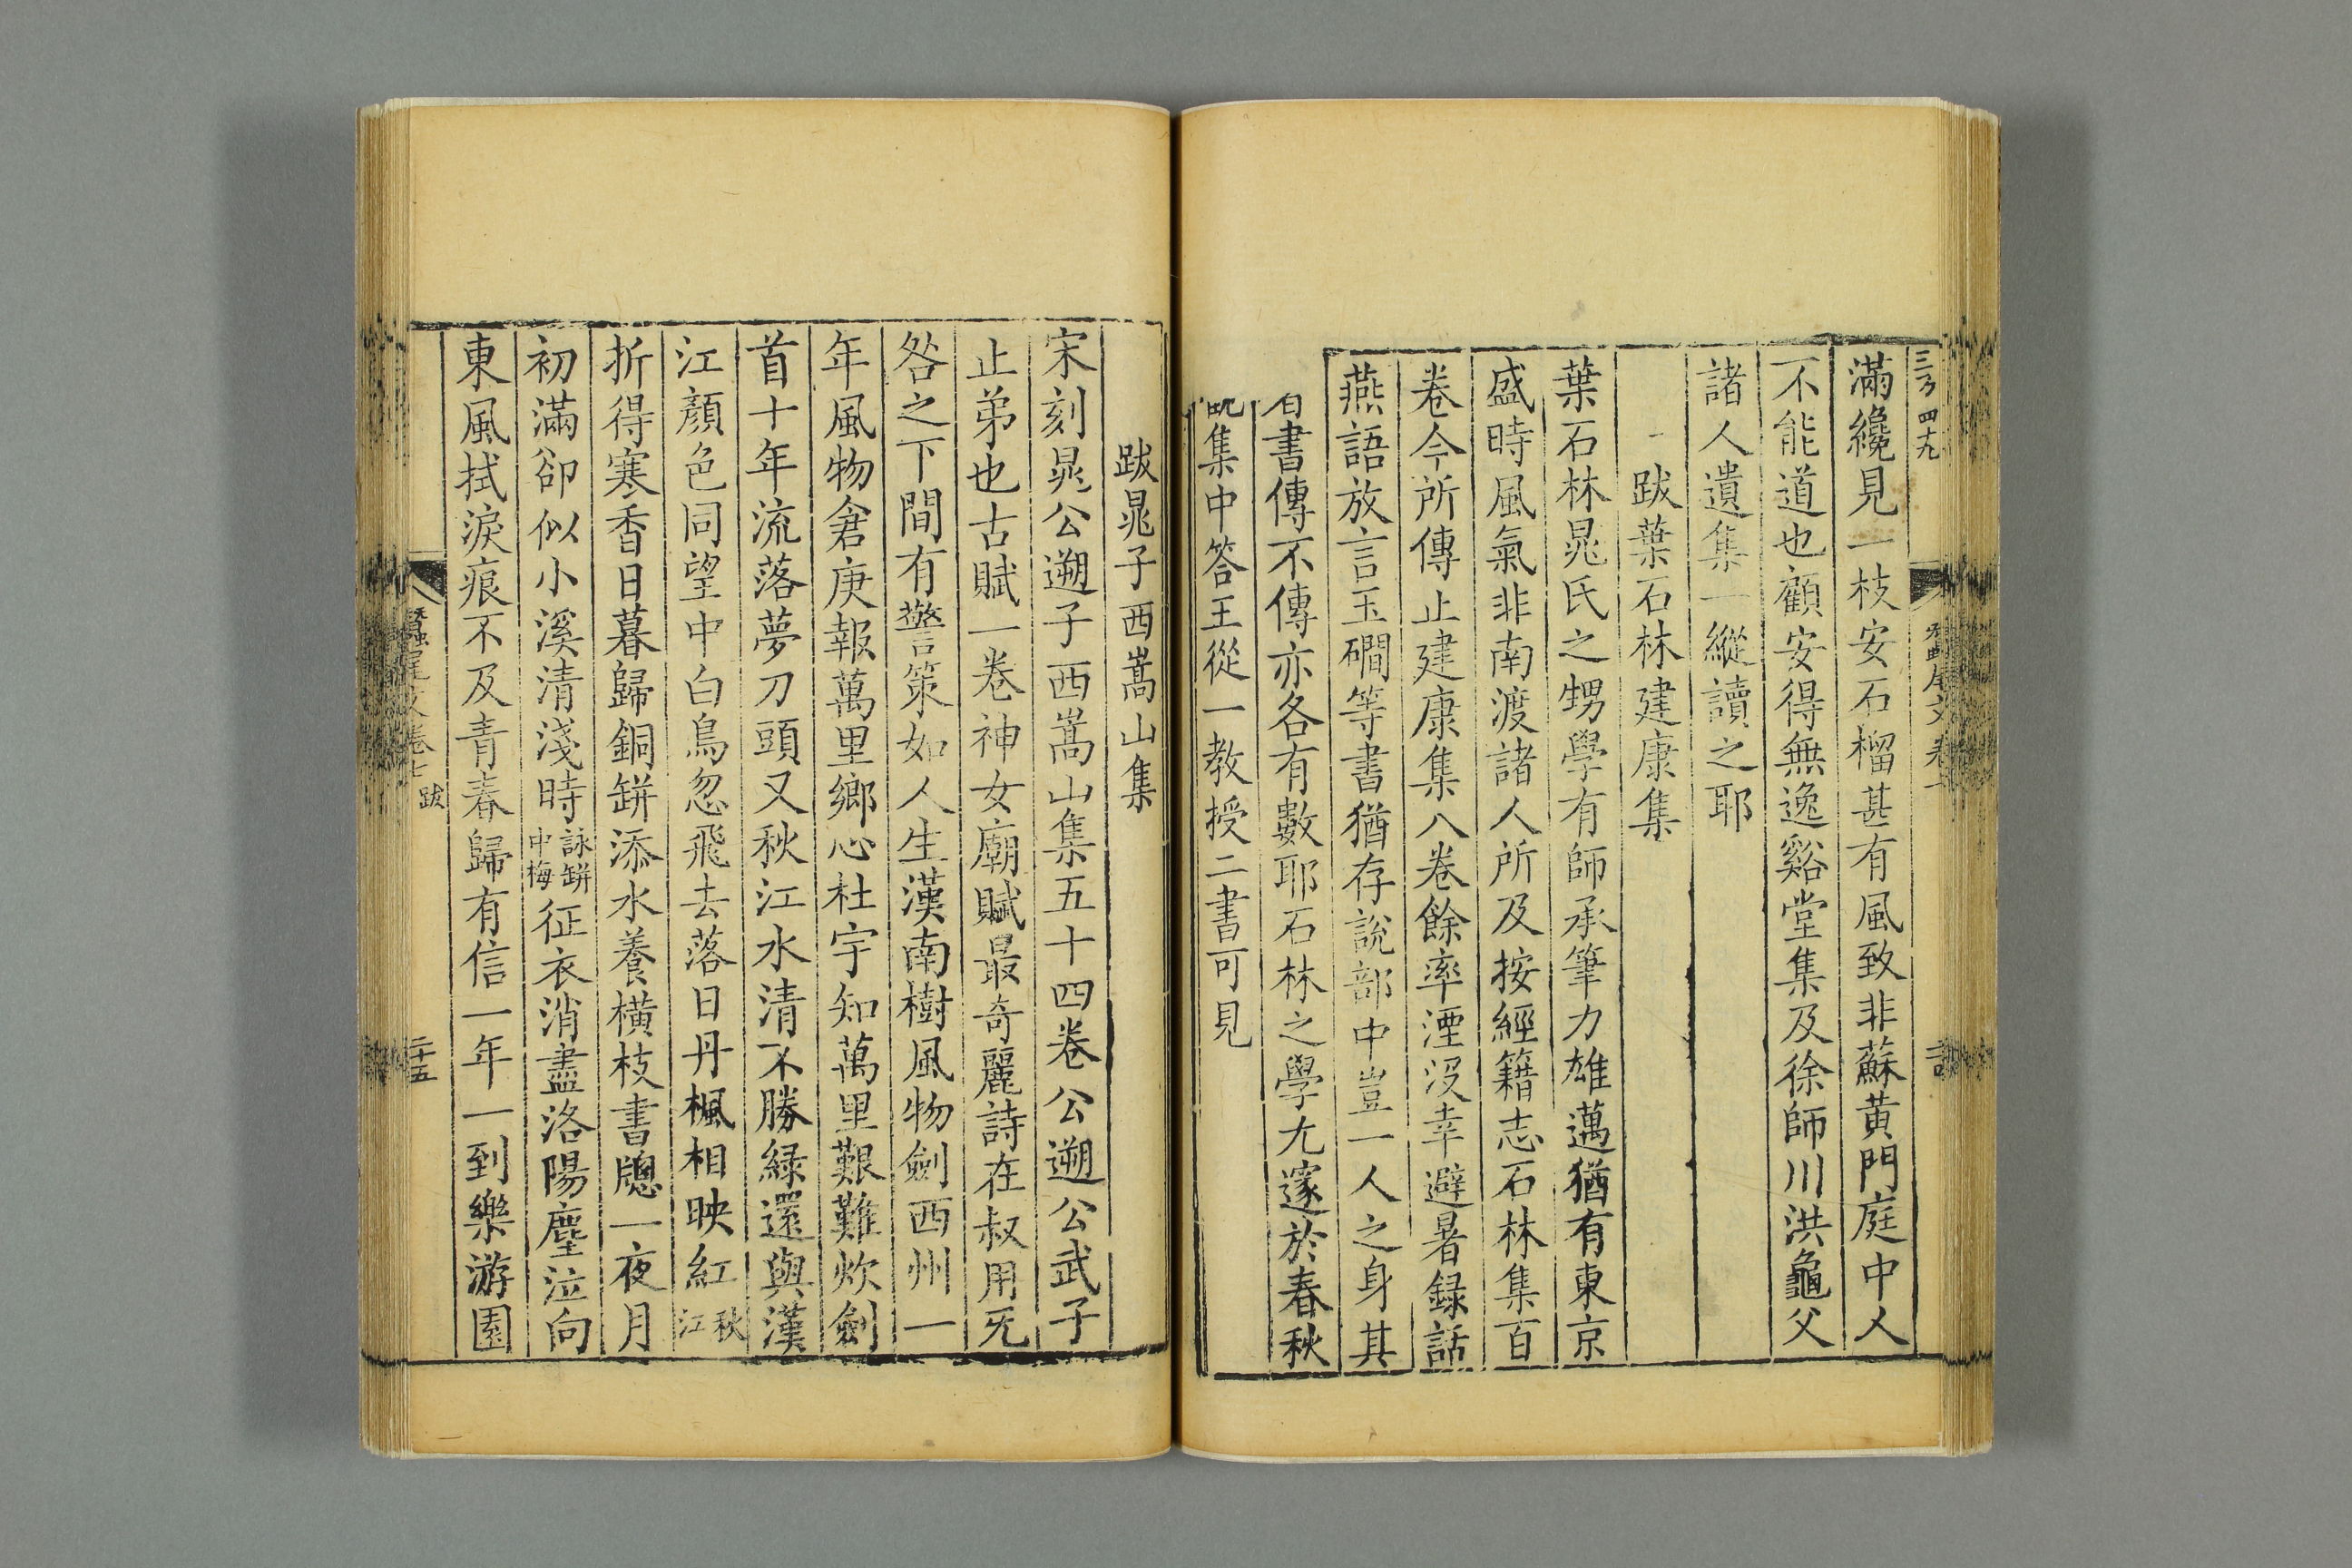 滿纔見一枝安石榴甚有風致非蘇黄門庭中人
不能道也顧安得無逸谿堂集及徐師川洪龜父
諸人遺集一縱讀之耶
跋葉石林建康集
葉石林晁氏之甥學有師承筆力雄邁猶有東京
盛時風氣非南渡諸人所及按經籍志石林集百
卷今所傳止建康集八卷餘率湮没幸避暑録話
燕語放言玉磵等書猶存說部中豈一人之身其
書傳不傳亦各有數耶石林之學尤邃於春秋
集中答王從一教授二書可見
跋晁子西嵩山集
宋刻晁公遡子西嵩山集五十四卷公遡公武子
止弟也古賦一卷神女廟賦最奇麗詩在叔用无
咎之下間有警策如人生漢南樹風物劍西州一
年風物倉庚報萬里鄉心杜宇知萬里艱難炊劍
首十年流落夢刀頭又秋江水清不勝緑還與漢
江顏色同望中白鳥忽飛去落日丹楓相映紅秋江
折得寒香日暮歸銅缾添水養橫枝書牕一夜月
初滿卻似小溪清淺時詠缾中梅征衣消盡洛陽塵泣向
東風拭淚痕不及青春歸有信一年一到樂游園
蠶尾文卷七 跋 二十五